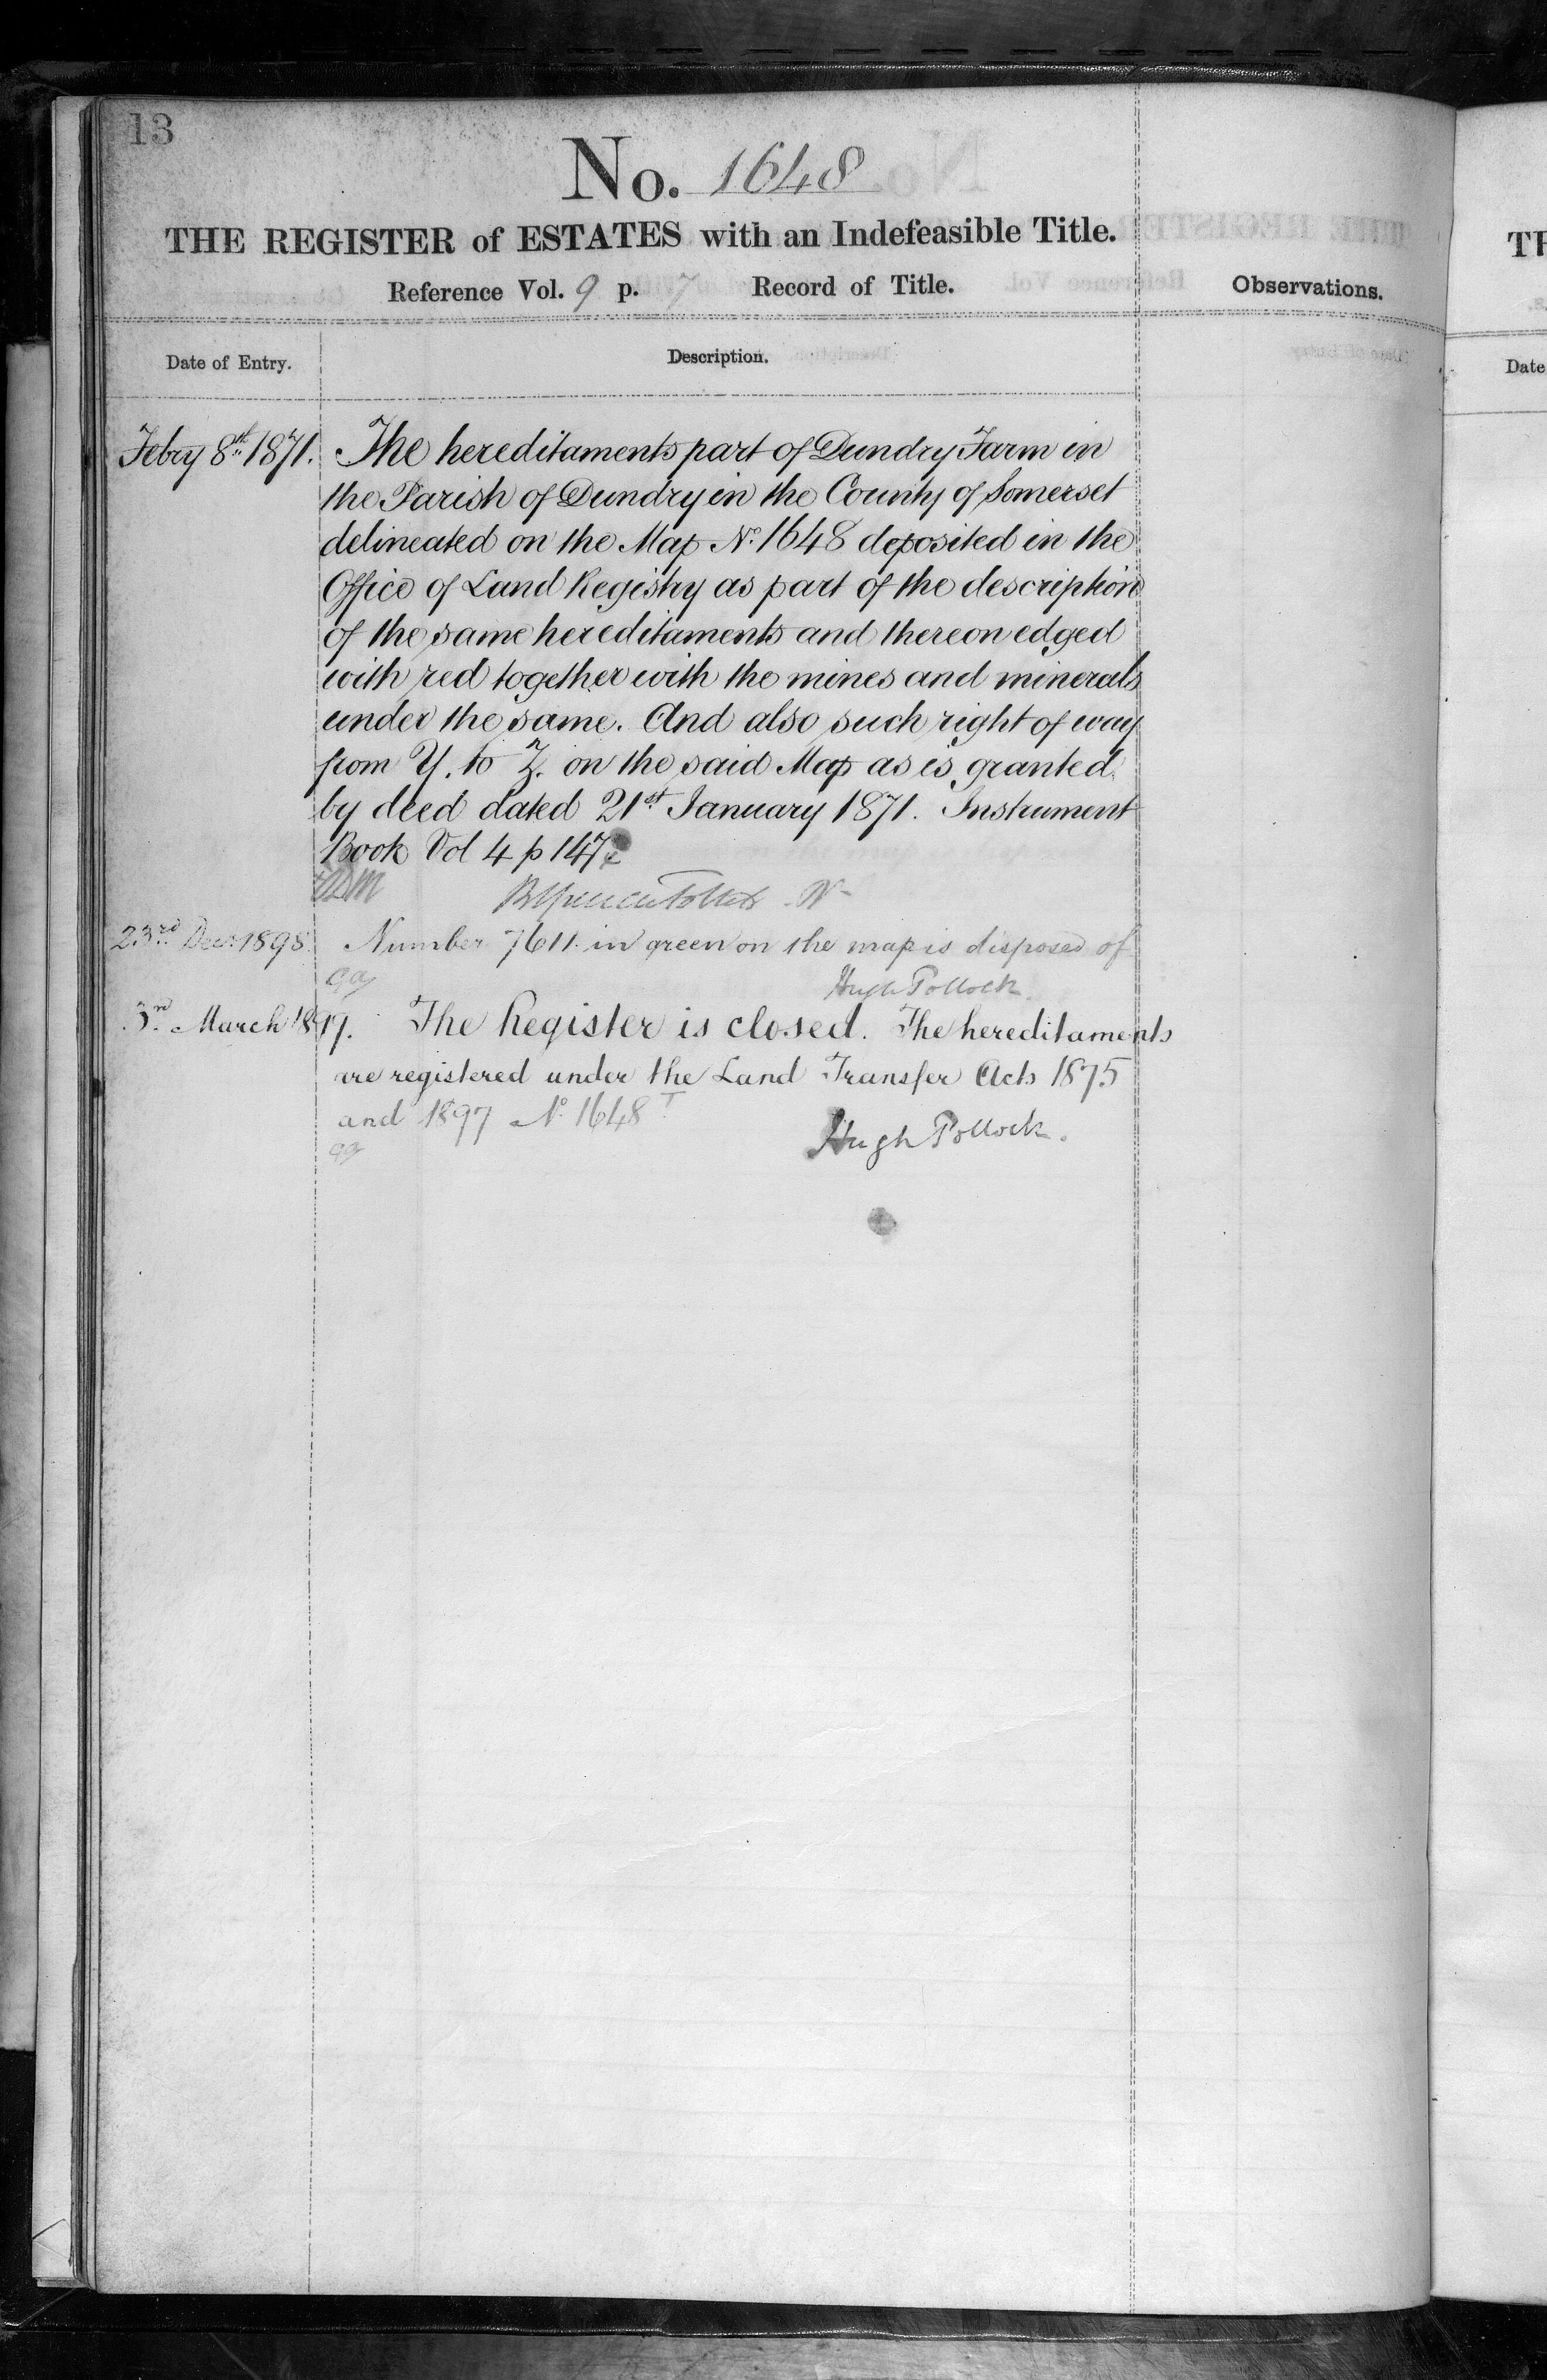 13
No. 1648
THE REGISTER of ESTATES with an Indefeasible Title.
Reference Vol. 9 p. 7 Record of Title.
Observations.
Date of Entry.
Description.
Febry 8th 1871. The hereditaments part of Dundry Farm in
the Parish of Dundry in the County of Somerset
delineated on the Map No. 1648 deposited in the
Office of Land Registry as part of the description
of the same hereditaments and thereon edged
with red together with the mines and minerals
under the same. And also such right of way
from Y. to Z. on the said Map as is granted
by deed dated 21st January 1871. Instrument
Book Vol 4 p 147
23rd Decr 1898 Number 7611 in green on the map is disposed of
Hugh Pollock.
3rd March 1899. The Register is closed. The hereditaments
are registered under the Land Transfer Acts 1875
and 1897 No. 1648T
Hugh Pollock.
TH
Date